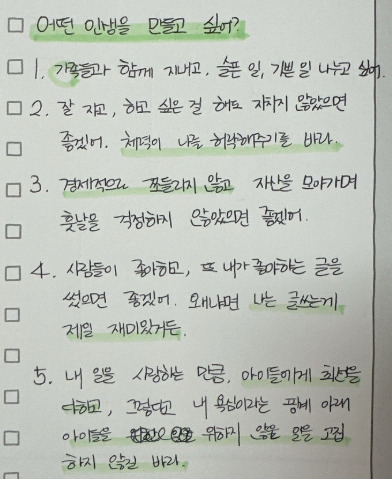 어떤 인생을 만들고 싶어?
1. 가족들과 함께 지내고, 슬픈 일, 기쁜 일 나누고 싶어.
2. 잘 자고, 하고 싶은 걸 해도 지치지 않았으면
좋겠어. 체력이 나를 허락해주기를 바라.
3. 경제적으로 쪼들리지 않고 자산을 모아가며
훗날을 걱정하지 않았으면 좋겠어.
4. 사람들이 좋아하고, 또 내가 좋아하는 글을
썼으면 좋겠어. 왜냐면 나는 글쓰는게
제일 재미있거든.
5. 내 일을 사랑하는 만큼, 아이들에게 최선을
다하고, 그렇다고 내 욕심이라는 핑계 아래
아이들을 위하지 않을 일을 고집
하지 않길 바라.